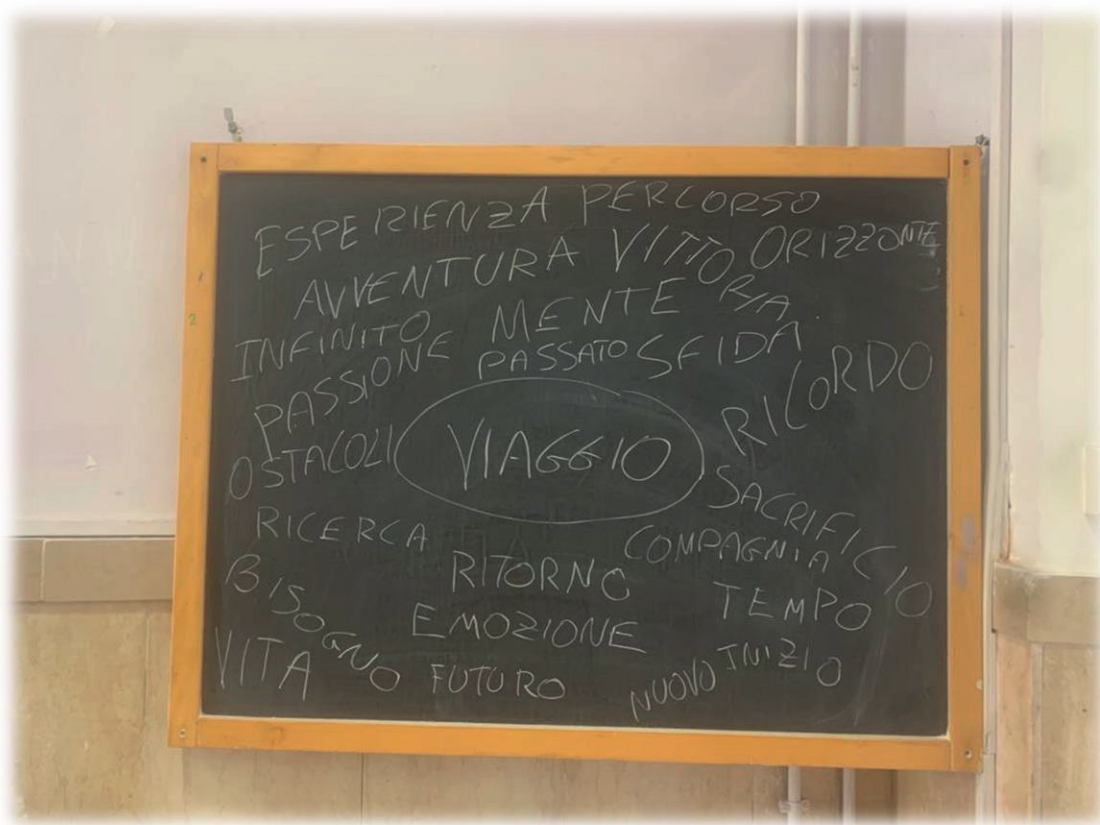 ESPERIENZA PERCORSO
AVVENTURA VITTORIA ORIZZONTE
INFINITO MENTE
PASSIONE PASSATO SFIDA
RICORDO
OSTACOLI VIAGGIO
SACRIFICIO
RICERCA COMPAGNIA
BISOGNO RITORNO TEMPO
EMOZIONE
VITA FUTURO NUOVO INIZIO